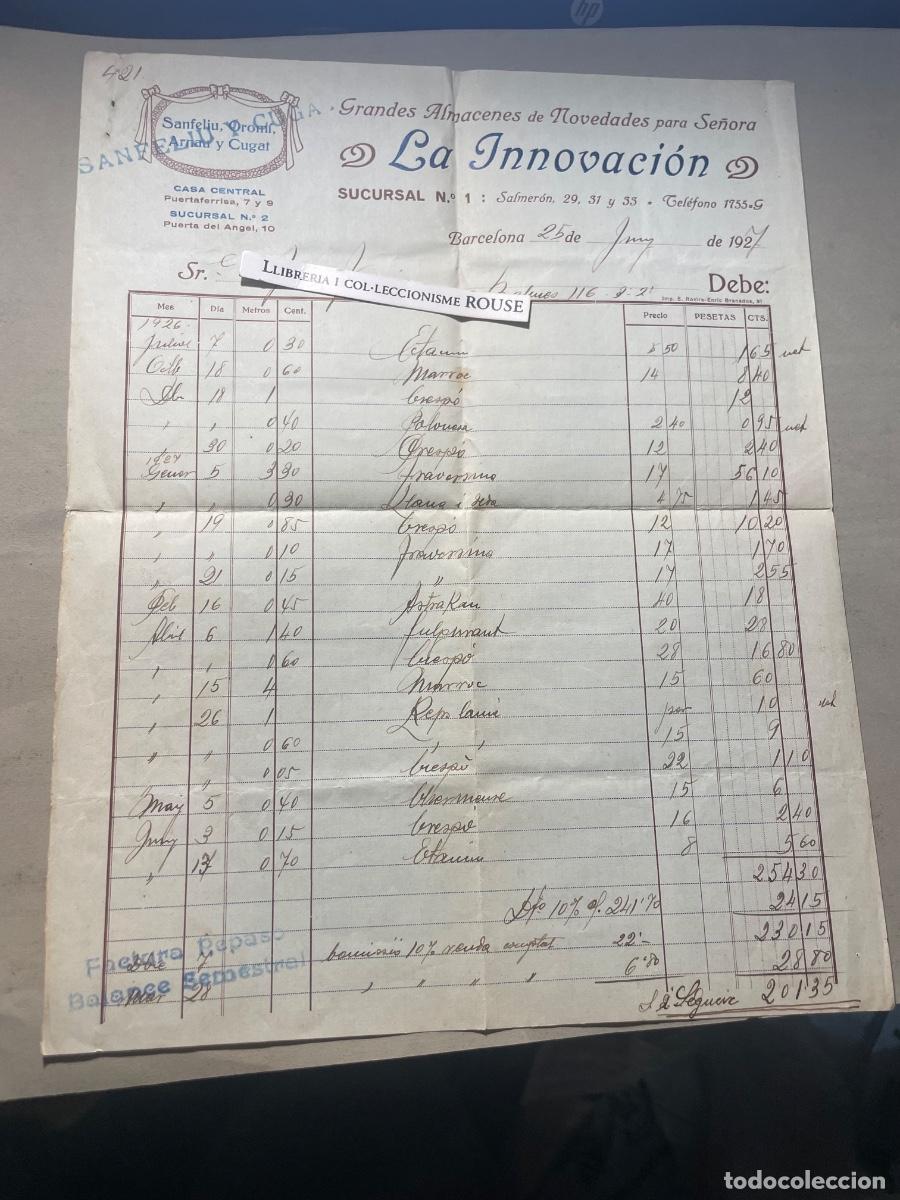 hp
421
Sanfeliu, Oromí,
Arnau y Cugat
SANFELIU Y CUGA
CASA CENTRAL
Puertaferrisa, 7 y 9
SUCURSAL N.º 2
Puerta del Angel, 10
Grandes Almacenes de Novedades para Señora
La Innovación
SUCURSAL N.º 1 : Salmerón, 29, 31 y 33 • Teléfono 1755-G
Barcelona 25 de Juny de 1927
Sr.
LLIBRERIA I COL·LECCIONISME ROUSE
116 Debe:
Imp. E. Ravira-Enric Granados, 91
Mes Día Metros Cent. Precio PESETAS CTS.
1926
Juliol 7 0 30 Etamin 5 50 1 65 net
Octb 18 0 60 Marroc 14 8 40
18 1 Crespó 12
" " 0 40 Polonesa 2 40 0 95 net
30 0 20 Crespó 12 2 40
1927
Gener 5 3 30 Traversina 17 56 10
" " 0 30 Llana i seda 4 75 1 45
" 19 0 85 Crespó 12 10 20
" " 0 10 Traversina 17 1 70
" 21 0 15 " 17 2 55
Feb 16 0 45 Astrakan 40 18
Abril 6 1 40 20 28
" " 0 60 Crespó 28 16 80
" 15 4 Marroc 15 60
" 26 1 Reps 10 net
" " 0 60 " " 15 9
" 0 05 Crespó 22 1 10
Maij 5 0 40 15 6
Juny 3 0 15 Crespó 16 2 40
" 17 0 70 Etamin 8 5 60
254 30
Dto 10% s/. 241'70 24 15
230 15
7 comissió 10% venda comptat 22'- 28 80
28 " " " " 6'80
201'35
Factura Repaso
Balance Semestral
todocoleccion